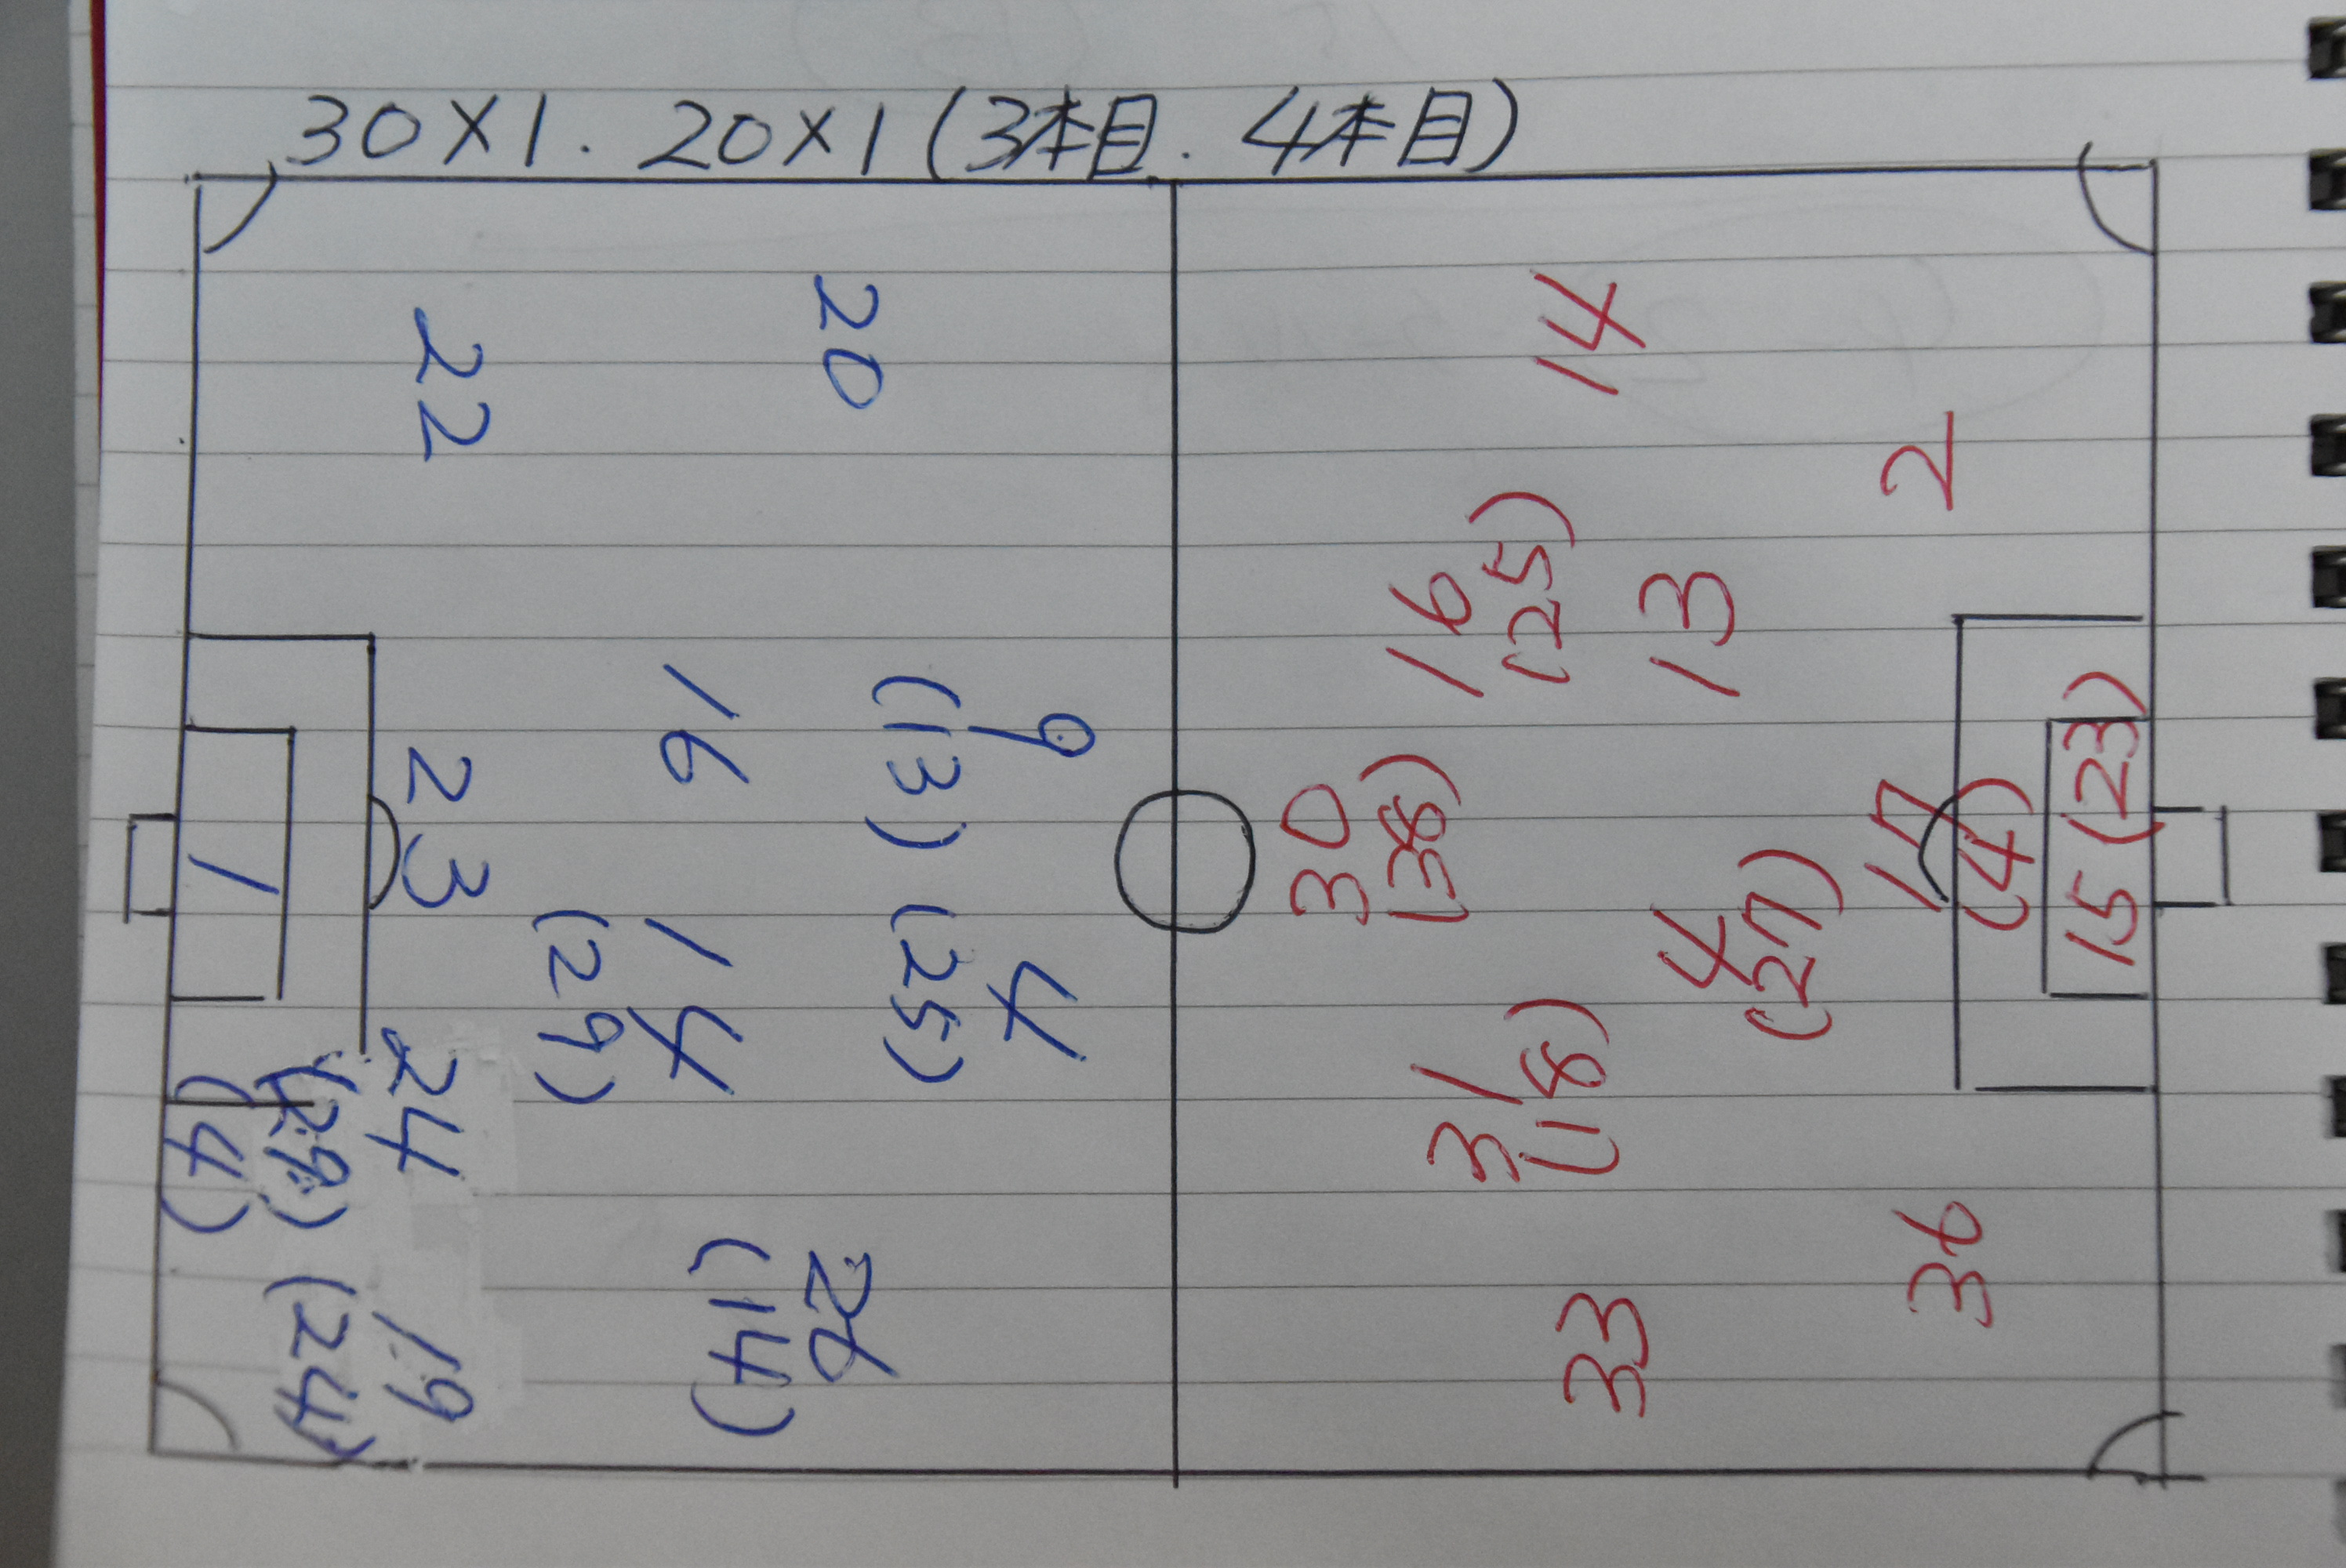 30×1. 20×1 (3本目. 4本目)
22
20
23
16
9
(13)
1
24
(29)
(4)
14
(29)
4
(25)
19
(24)
26
(14)
14
2
16
(25)
13
30
(38)
4
(27)
17
(4)
15 (23)
31
(18)
36
33